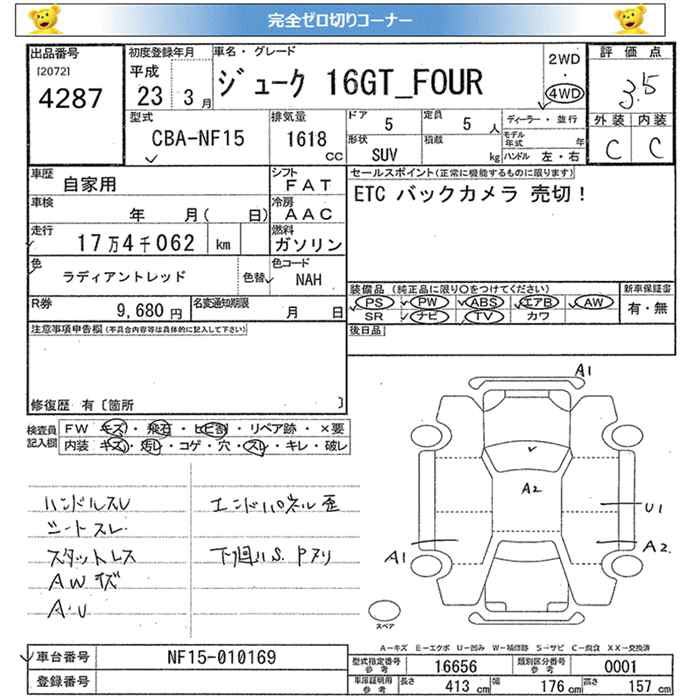 完全ゼロ切りコーナー
出品番号
[2072]
4287
初度登録年月
平成
23 3 月
車名・グレード
ジューク 16GT_FOUR
2WD
・
4WD
評価点
3.5
外装 内装
C C
型式
CBA-NF15
排気量
1618
cc
ドア
5
定員
5 人
形状
SUV
積載
kg
ディーラー・並行
モデル年式 年
ハンドル 左・右
車歴
自家用
シフト
FAT
車検
年 月( 日)
冷房
AAC
走行
17万4千062 km
燃料
ガソリン
色
ラディアントレッド
色替
色コード
NAH
R券
9,680 円
名変通知期限
月 日
セールスポイント(正常に機能するものに限ります)
ETC バックカメラ 売切!
装備品 (純正品に限り○をつけてください)
PS PW ABS エアB AW
SR ナビ TV カワ
新車保証書
有・無
後日品
注意事項申告欄(不具合内容等は具体的に記入して下さい)
修復歴 有〔箇所 〕
検査員記入欄
FW キズ・飛石・ヒビ割・リペア跡・×要
内装 キズ・汚レ・コゲ・穴・スレ・キレ・破レ
ハンドルスレ
シートスレ
スタットレス
AWキズ
A・U
エンドパネル歪
下廻りS.Pヌリ
A1
A2
U1
A1
A2
スペア
A-キズ E-エクボ U-凹み W-補修跡 S-サビ C-腐食 XX-交換済
車台番号
NF15-010169
登録番号
型式指定番号
参考
16656
類別区分番号
参考
0001
車庫証明用
参考
長さ 413 cm
幅 176 cm
高さ 157 cm